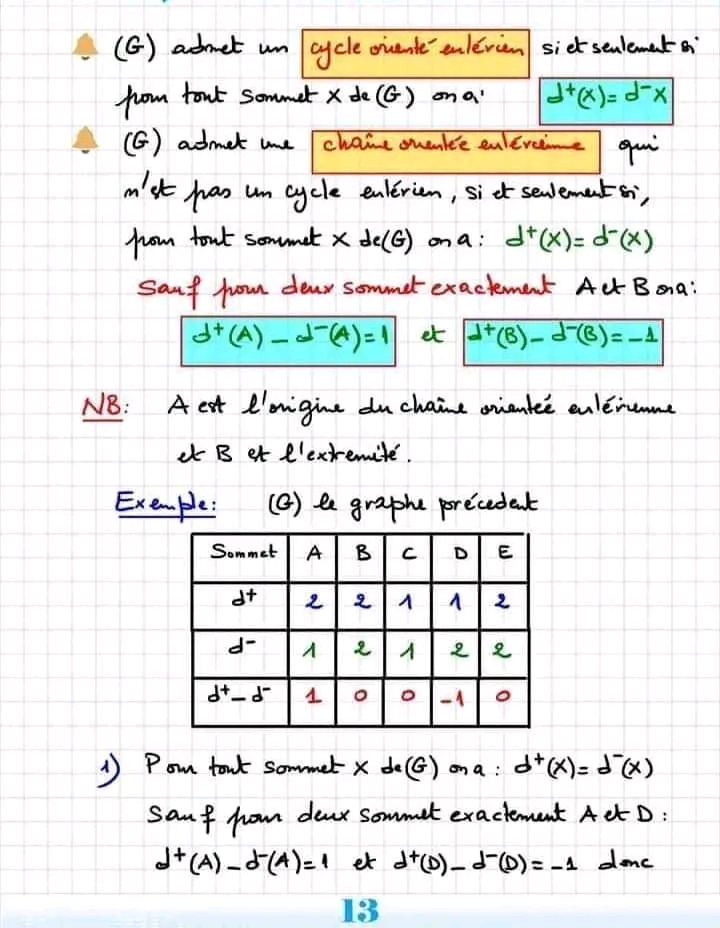 (G) admet un cycle orienté eulérien si et seulement si
pour tout sommet X de (G) on a: d⁺(X)= d⁻X
(G) admet une chaîne orientée eulérienne qui
n'est pas un cycle eulérien, si et seulement si,
pour tout sommet X de(G) on a: d⁺(X)= d⁻(X)
Sauf pour deux sommet exactement A et B on a:
d⁺(A) – d⁻(A)=1 et d⁺(B)– d⁻(B)= –1
NB: A est l'origine du chaîne orientée eulérienne
et B et l'extremité.
Exemple: (G) le graphe précedent
Sommet A B C D E
d⁺ 2 2 1 1 2
d⁻ 1 2 1 2 2
d⁺– d⁻ 1 0 0 –1 0
1) Pour tout sommet X de(G) on a : d⁺(X)= d⁻(X)
Sauf pour deux sommet exactement A et D :
d⁺(A) – d⁻(A)=1 et d⁺(D)– d⁻(D)= –1 donc
13